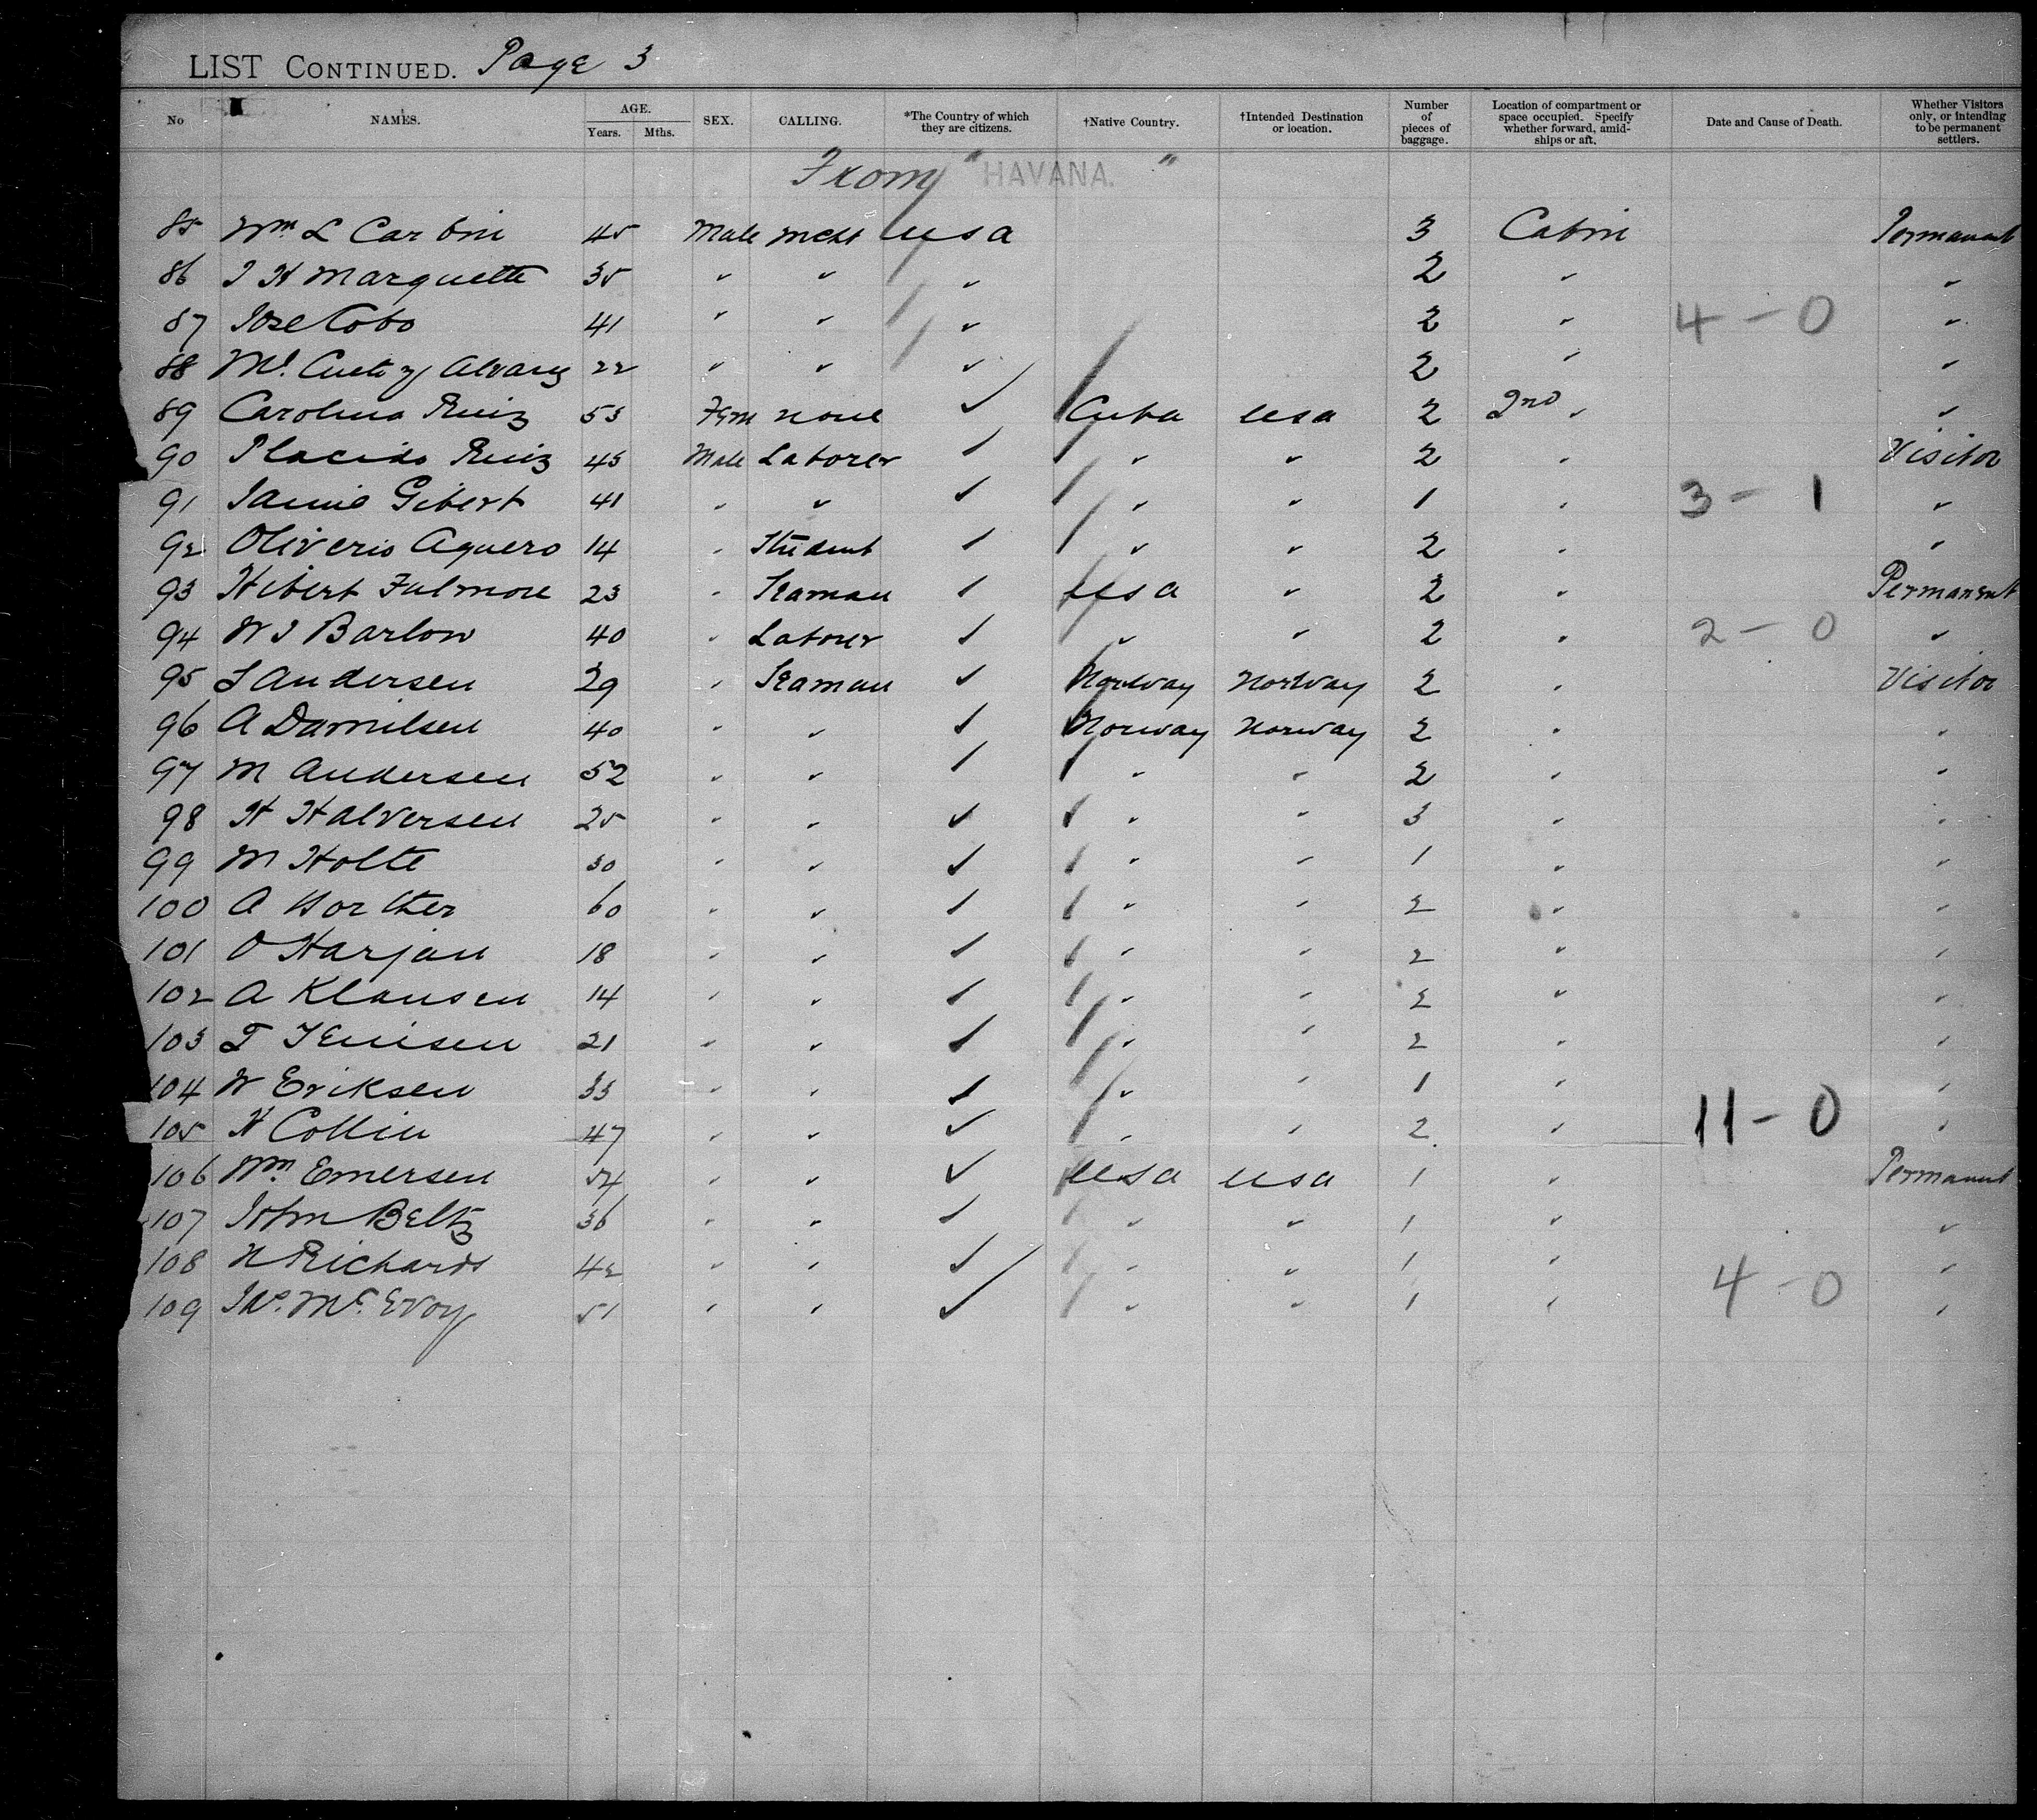 LIST CONTINUED. Page 3
No NAMES. AGE. Years. Mths. SEX. CALLING. *The Country of which they are citizens. †Native Country. †Intended Destination or location. Number of pieces of baggage. Location of compartment or space occupied. Specify whether forward, amidships or aft. Date and Cause of Death. Whether Visitors only, or intending to be permanent settlers.
From "HAVANA."
85 Wm. L Carbin 45 Male Mcht USA 3 Cabin Permanent
86 J H Marquette 35 " " " 2 " "
87 Jose Cobo 41 " " " 2 " 4-0 "
88 Ml. Cueto y Alvarez 22 " " " 2 " "
89 Carolina Ruiz 53 Fem none ✓ Cuba USA 2 2nd " "
90 Placido Ruiz 45 Male Laborer ✓ " " 2 " Visitor
91 Jaime Gibert 41 " " ✓ " " 1 " 3-1 "
92 Oliverio Aguero 14 " Student ✓ " " 2 " "
93 Hibert Fulmore 23 " Seaman ✓ USA " 2 " Permanent
94 W J Barlow 40 " Laborer ✓ " " 2 " 2-0 "
95 Andersen 29 " Seaman ✓ Norway Norway 2 " Visitor
96 A Damilsen 40 " " ✓ Norway Norway 2 " "
97 M Andersen 52 " " ✓ " " 2 " "
98 H Halversen 25 " " ✓ " " 3 " "
99 M Holte 30 " " ✓ " " 1 " "
100 A 60 " " ✓ " " 2 " "
101 O Harjan 18 " " ✓ " " 2 " "
102 A Klausen 14 " " ✓ " " 2 " "
103 21 " " ✓ " " 2 " "
104 W Eriksen 33 " " ✓ " " 1 " "
105 H Collin 47 " " ✓ " " 2 " 11-0 "
106 Wm. Emersen 54 " " ✓ USA USA 1 " Permanent
107 John Beltz 36 " " ✓ " " 1 " "
108 N Richards 42 " " ✓ " " 1 " "
109 Jno. McEvoy 51 " " ✓ " " 1 " 4-0 "